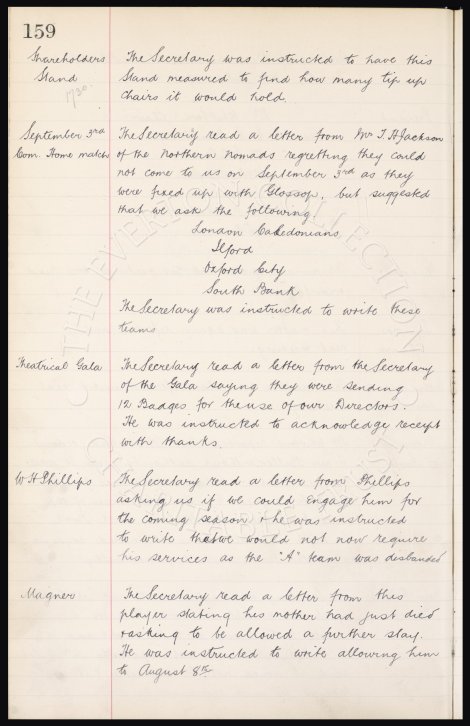 159
Shareholders Stand
1730.
The Secretary was instructed to have this
Stand measured to find how many tip up
Chairs it would hold.
September 3rd
Com. Home match
The Secretary read a letter from Mr T. H. Jackson
of the Northern Nomads regretting they could
not come to us on September 3rd as they
were fixed up with Glossop, but suggested
that we ask the following
London Caledonians
Ilford
Oxford City
South Bank
The Secretary was instructed to write these
teams
Theatrical Gala
The Secretary read a letter from the Secretary
of the Gala saying they were sending
12 Badges for the use of our Directors.
He was instructed to acknowledge receipt
with thanks.
W H Phillips
The Secretary read a letter from Phillips
asking us if we could engage him for
the coming season & he was instructed
to write that we would not now require
his services as the "A" team was disbanded
Magner
The Secretary read a letter from this
player stating his mother had just died
& asking to be allowed a further stay.
He was instructed to write allowing him
to August 8th
THE EVERTON COLLECTION